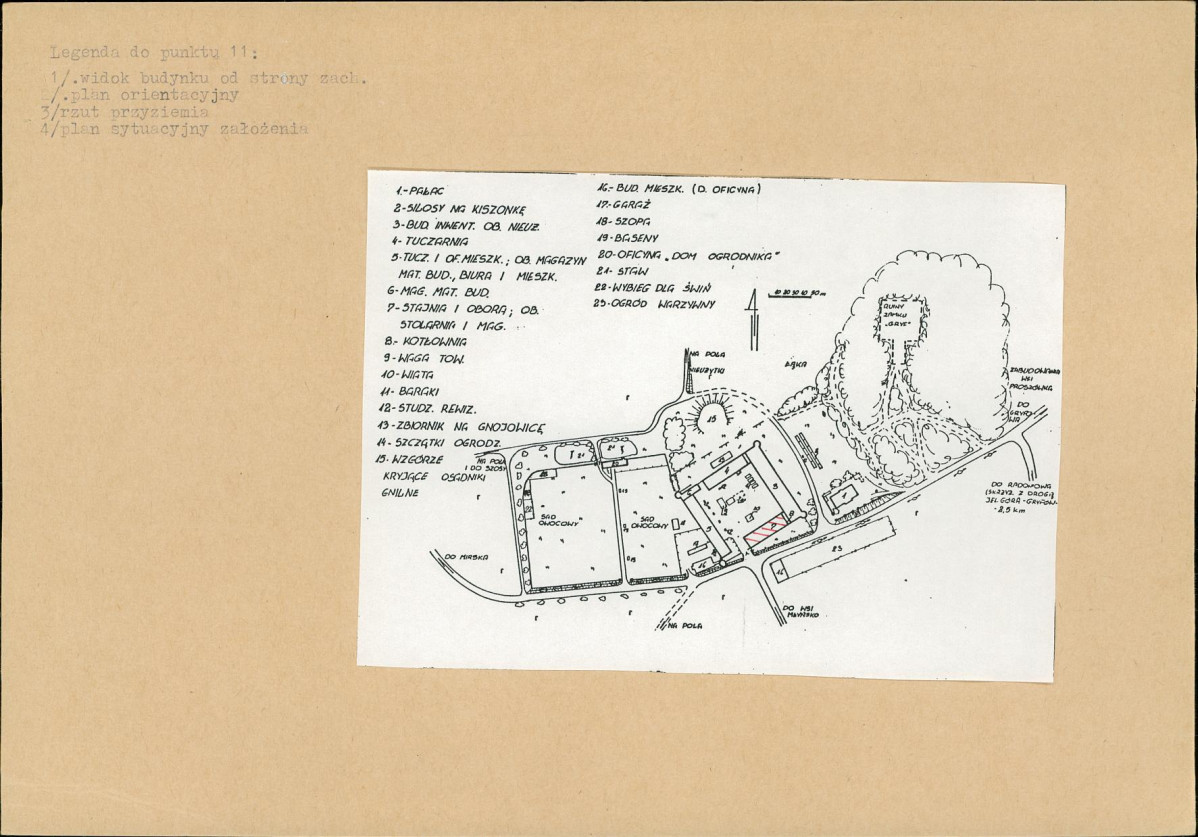 Legenda do punktu 11:
1/.widok budynku od strony zach.
/.plan orientacyjny
3/rzut przyziemia
4/plan sytuacyjny założenia
1.-PAŁAC
2-SILOSY NA KISZONKĘ
3-BUD. INWENT. OB. NIEUŻ.
4- TUCZARNIA
5-TUCZ. I OF. MIESZK.; OB. MAGAZYN
MAT. BUD., BIURA I MIESZK.
6-MAG. MAT. BUD.
7-STAJNIA I OBORA; OB.
STOLARNIA I MAG.
8.- KOTŁOWNIA
9-WAGA TOW.
10-WIATA
11- BARAKI
12-STUDZ. REWIZ.
13-ZBIORNIK NA GNOJOWICĘ
14- SZCZĄTKI OGRODZ.
15- WZGÓRZE
KRYJĄCE OSADNIKI
GNILNE
16.- BUD. MIESZK. (D. OFICYNA)
17-GARAŻ
18- SZOPA
19-BASENY
20-OFICYNA „DOM OGRODNIKA"
21- STAW
22-WYBIEG DLA ŚWIŃ
23-OGRÓD WARZYWNY
10 20 30 40 50 m
RUINY
ZAMKU
„GRYF"
NA POLA
NIEUŻYTKI
ŁĄKA
ZABUDOWANIA
WSI
PROSZÓWKA
DO
GRYFOWA
NA POLA
I DO SZOSY
15
21
21
DO RADONIOWA
(SKRZYŻ. Z DROGĄ
JEL. GÓRA-GRYFÓW-
-2,5 km
SAD
OWOCOWY
SAD
OWOCOWY
DO MIRSKA
23
16
16
DO WSI
MŁYŃSKO
NA POLA